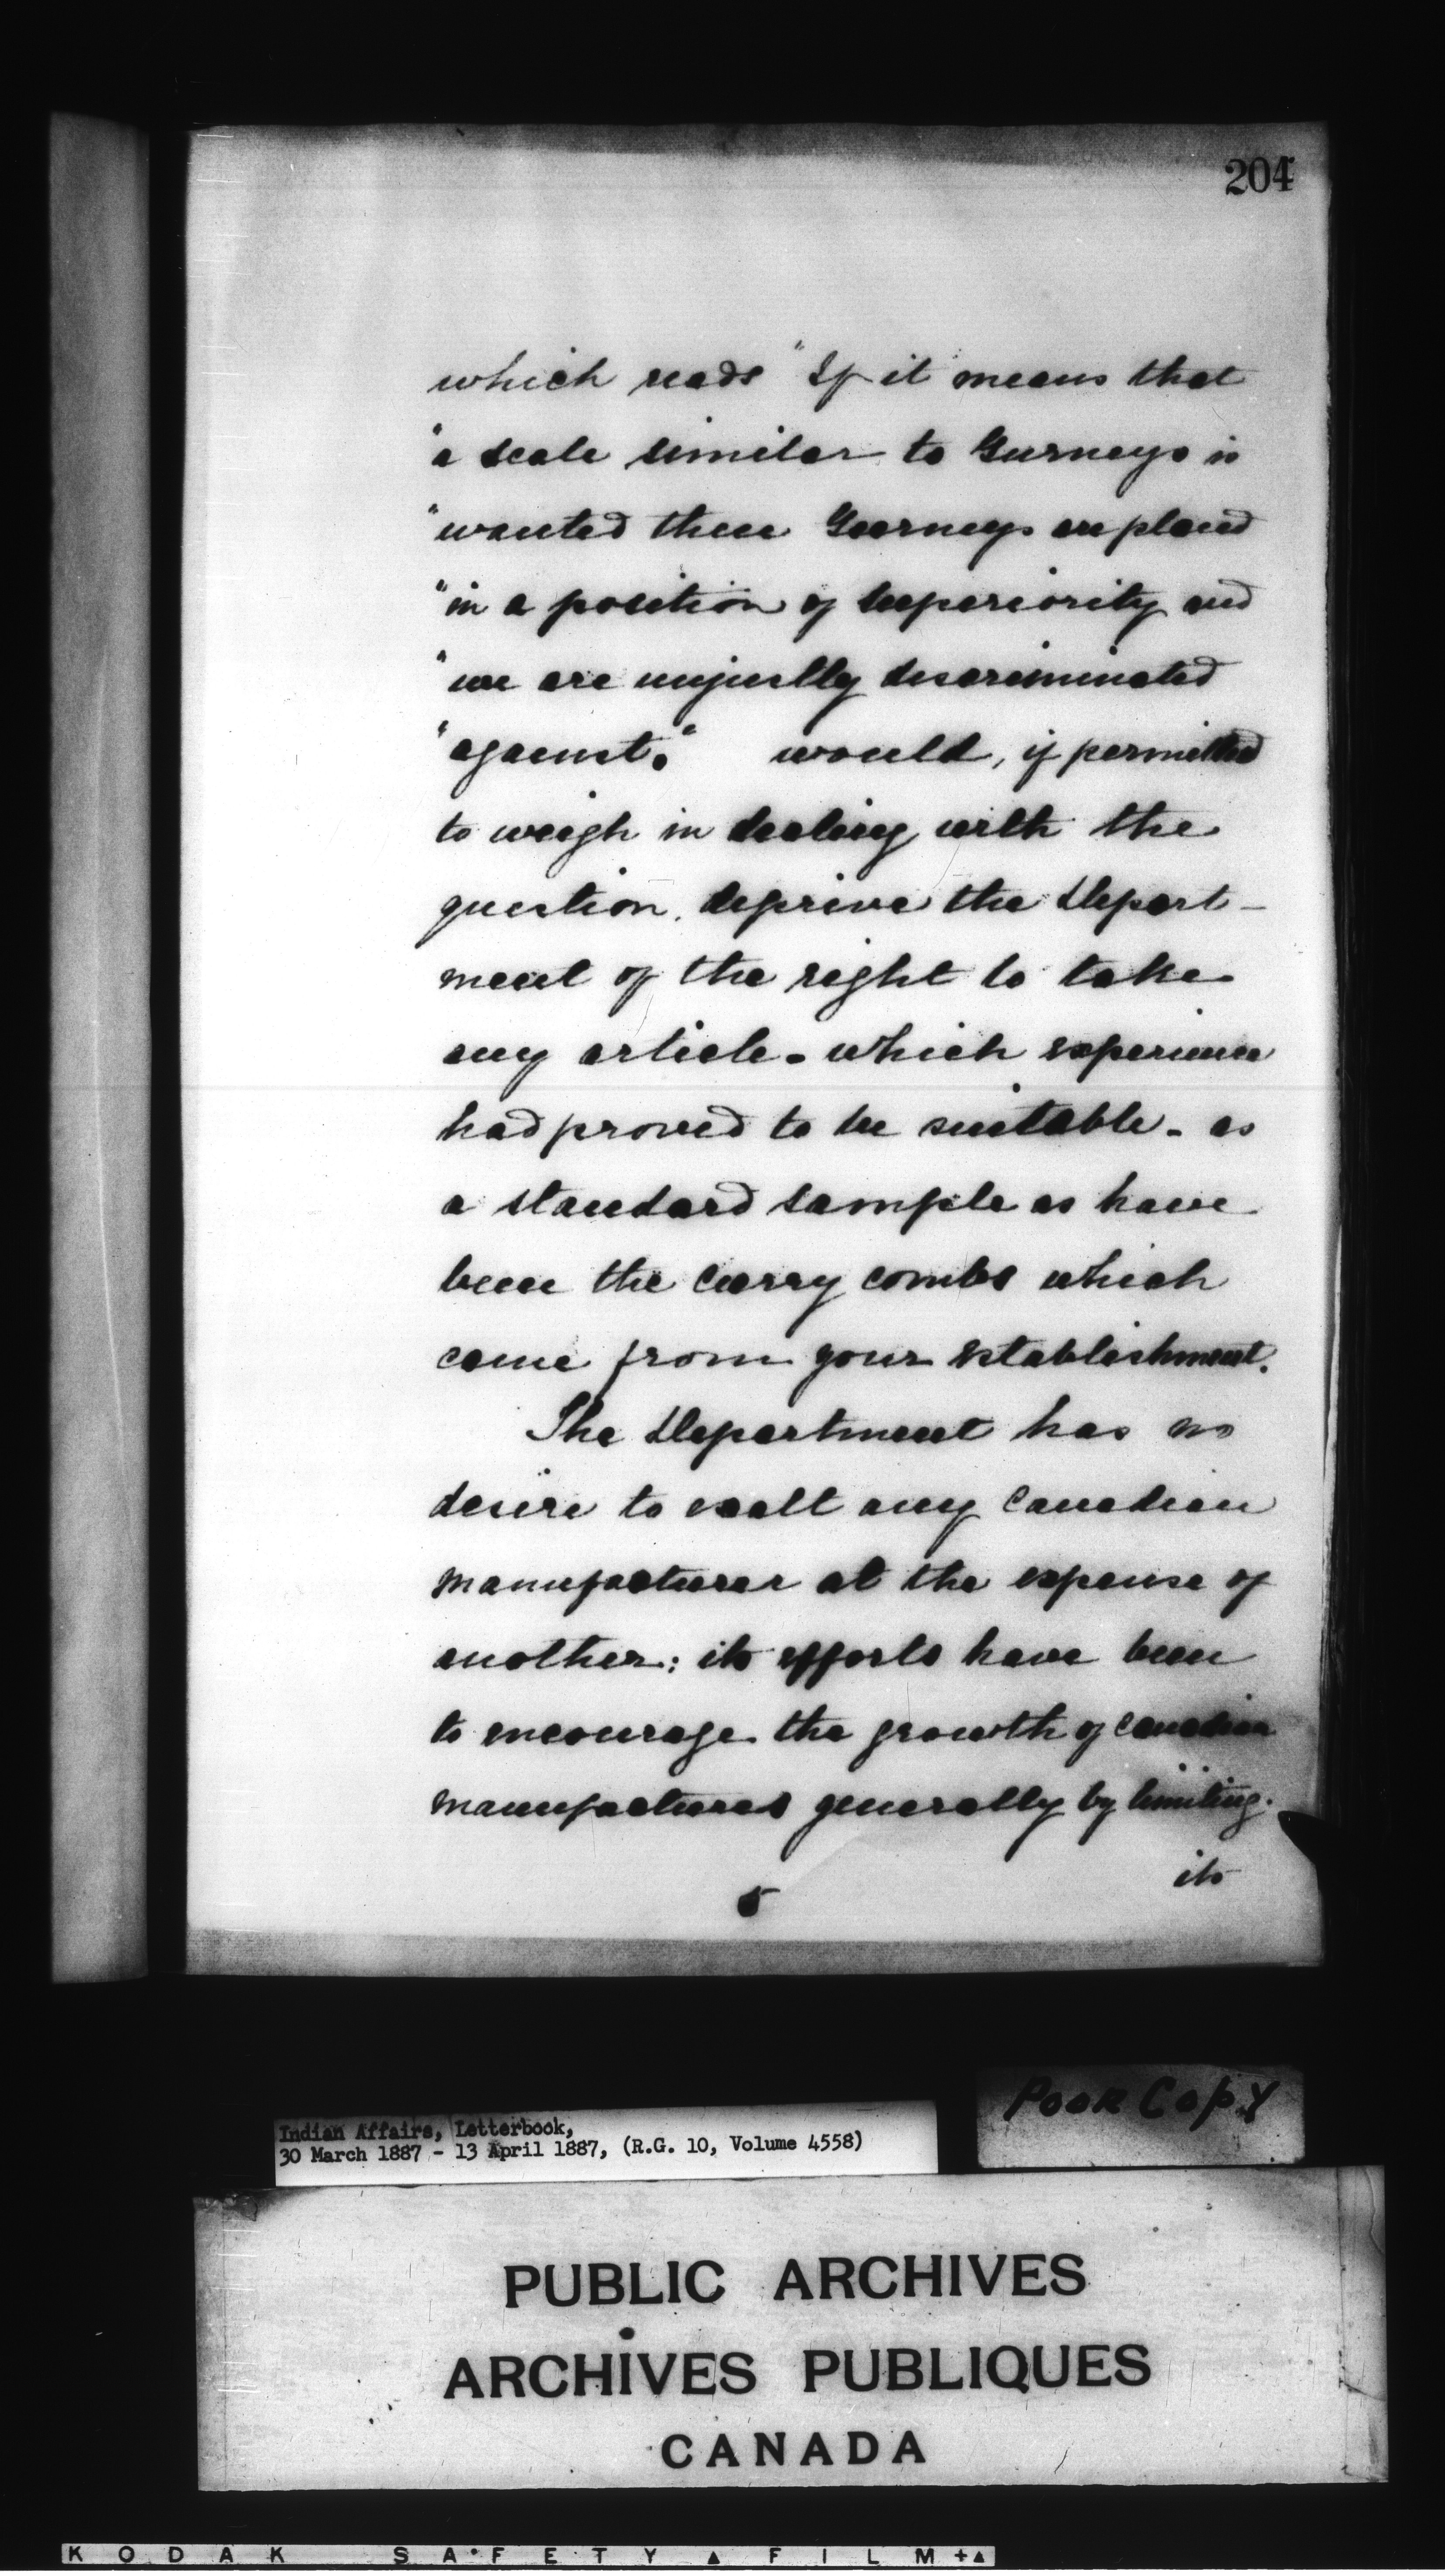 204
which reads "If it means that
"a scale similar to Gurneys is
"wanted then Gurneys are placed
"in a position of superiority and
"we are unjustly discriminated
"against." would, if permitted
to weigh in dealing with the
question, deprive the Depart-
ment of the right to take
any article - which experience
had proved to be suitable - as
a standard sample as have
been the curry combs which
came from your establishment.
The Department has no
desire to exalt any Canadian
manufacturer at the expense of
another: its efforts have been
to encourage the growth of Canadian
manufactures generally by limiting
its
5
Poor Copy
Indian Affairs, Letterbook,
30 March 1887 - 13 April 1887, (R.G. 10, Volume 4558)
PUBLIC ARCHIVES
ARCHIVES PUBLIQUES
CANADA
KODAK SAFETY FILM